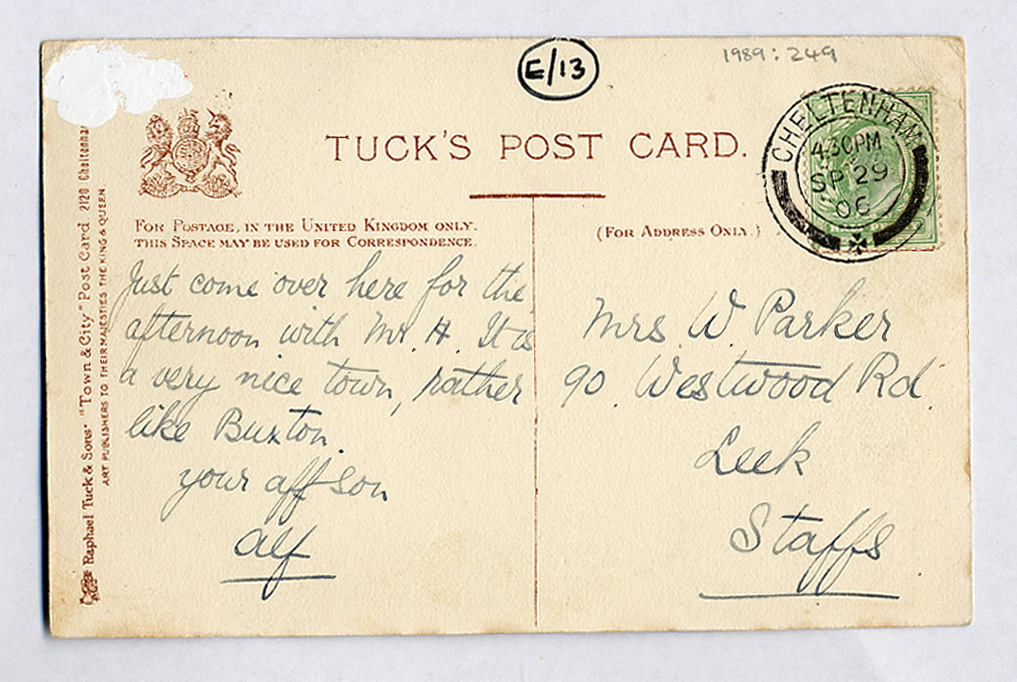 E/13
1989: 249
TUCK'S POST CARD.
CHELTENHAM
4.30PM
SP 29
06
FOR POSTAGE, IN THE UNITED KINGDOM ONLY.
THIS SPACE MAY BE USED FOR CORRESPONDENCE.
(FOR ADDRESS ONLY.)
Just come over here for the
afternoon with Mr. H. It is
a very nice town, rather
like Buxton.
your aff son
Alf
Mrs W Parker
90. Westwood Rd.
Leek
Staffs
Raphael Tuck & Sons' "Town & City" Post Card 2120 Cheltenham
ART PUBLISHERS TO THEIR MAJESTIES THE KING & QUEEN.